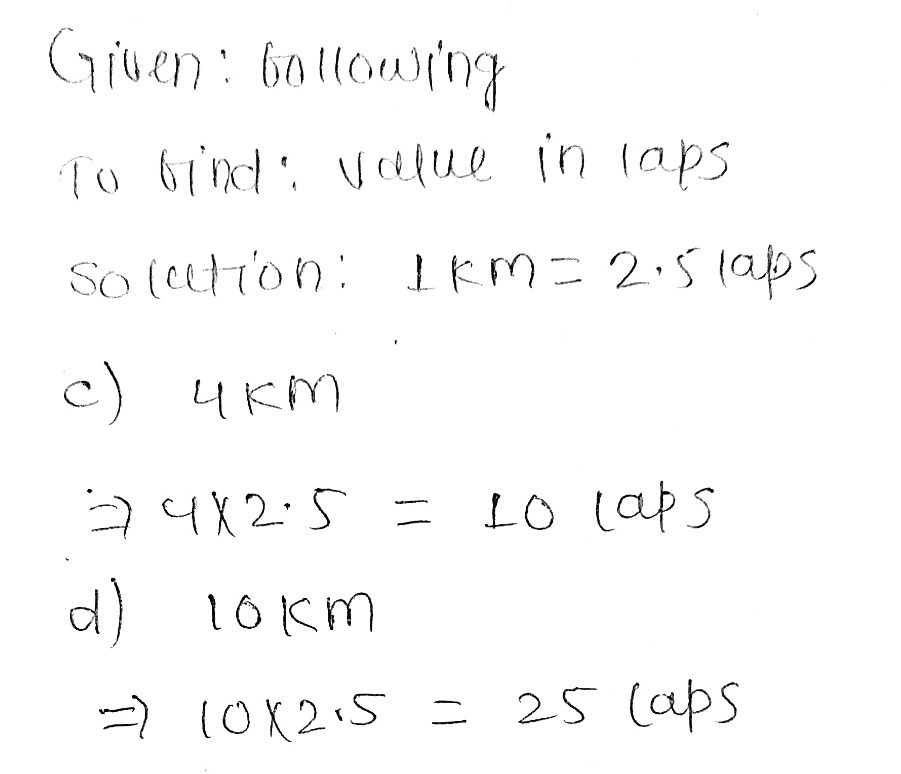 Given: following
To find: value in laps
Solution: 1km = 2.5 laps
c) 4 km
⇒ 4x2.5 = 10 laps
d) 10 km
⇒ 10x2.5 = 25 laps